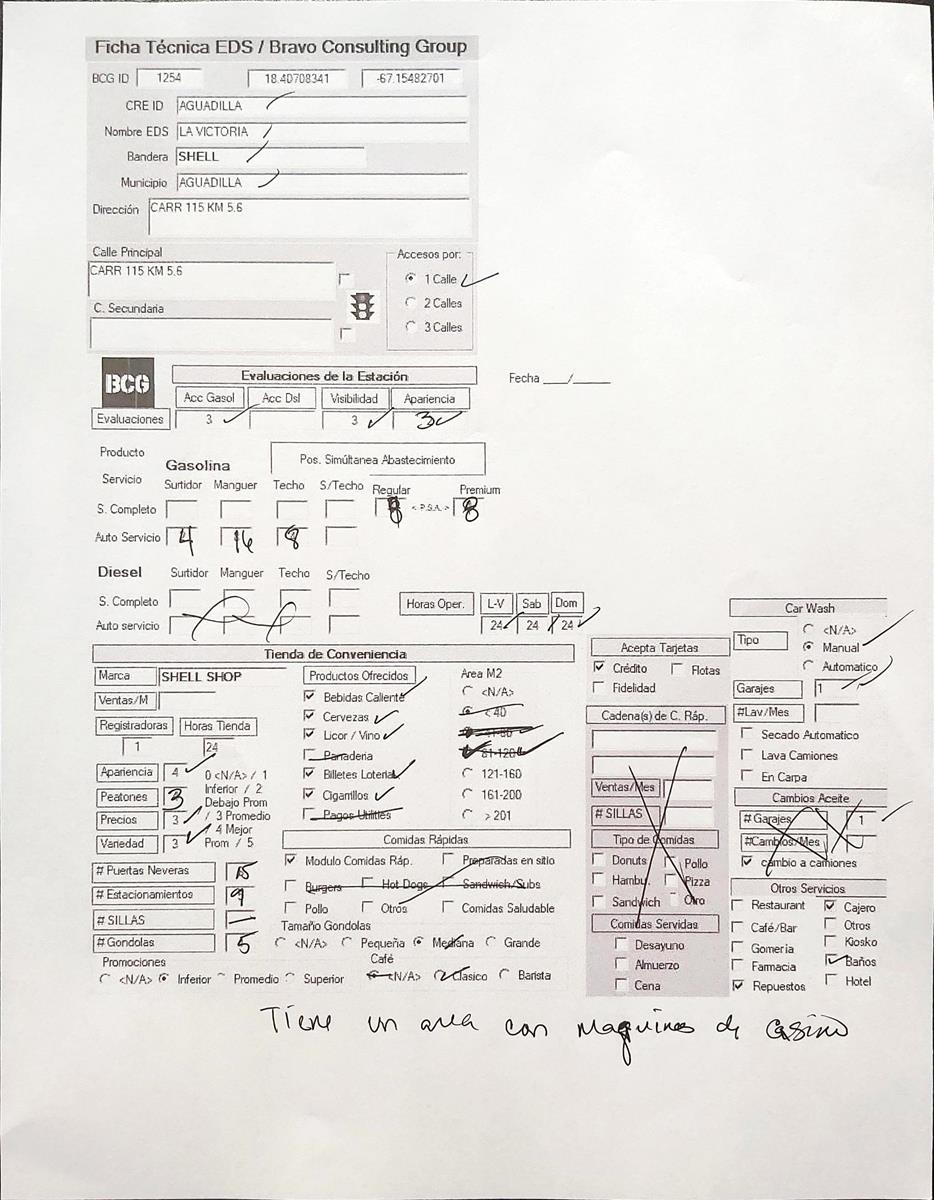 Ficha Técnica EDS / Bravo Consulting Group
BCG ID 1254 18.40708341 -67.15482701
CRE ID AGUADILLA
Nombre EDS LA VICTORIA
Bandera SHELL
Municipio AGUADILLA
Dirección CARR 115 KM 5.6
Calle Principal
CARR 115 KM 5.6
C. Secundaria
Accesos por:
1 Calle
2 Calles
3 Calles
BCG
Evaluaciones de la Estación
Fecha ___/______
Acc Gasol Acc Dsl Visibilidad Apariencia
Evaluaciones 3 3 3
Producto
Servicio
Gasolina
Pos. Simúltanea Abastecimiento
Surtidor Manguer Techo S/Techo Regular Premium
S. Completo 8 < P.S.A. > 8
Auto Servicio 4 16 8
Diesel Surtidor Manguer Techo S/Techo
S. Completo
Auto servicio
Horas Oper. L-V Sab Dom
24 24 24
Tienda de Conveniencia
Marca SHELL SHOP
Ventas/M
Registradoras Horas Tienda
1 24
Apariencia 4
Peatones 3
Precios 3
Variedad 3
0 <N/A> / 1
Inferior / 2
Debajo Prom
/ 3 Promedio
4 Mejor
Prom / 5
# Puertas Neveras 15
# Estacionamientos 9
# SILLAS —
# Gondolas 5
Promociones
<N/A> Inferior Promedio Superior
Productos Ofrecidos
Bebidas Caliente
Cervezas
Licor / Vino
Panaderia
Billetes Loteria
Cigarrillos
Pagos Utilities
Area M2
<N/A>
< 40
81-120
121-160
161-200
> 201
Comidas Rápidas
Modulo Comidas Ráp. Preparadas en sitio
Burgers Hot Dogs Sandwich/Subs
Pollo Otros Comidas Saludable
Tamaño Gondolas
<N/A> Pequeña Mediana Grande
Café
<N/A> Clasico Barista
Acepta Tarjetas
Crédito Flotas
Fidelidad
Cadena(s) de C. Ráp.
Ventas/Mes
# SILLAS
Tipo de Comidas
Donuts Pollo
Hambu. Pizza
Sandwich Otro
Comidas Servidas
Desayuno
Almuerzo
Cena
Car Wash
Tipo
<N/A>
Manual
Automatico
Garajes 1
#Lav/Mes
Secado Automatico
Lava Camiones
En Carpa
Cambios Aceite
# Garajes 1
#Cambios/Mes
cambio a camiones
Otros Servicios
Restaurant Cajero
Café/Bar Otros
Gomeria Kiosko
Farmacia Baños
Repuestos Hotel
Tiene un area con maquinas de casino